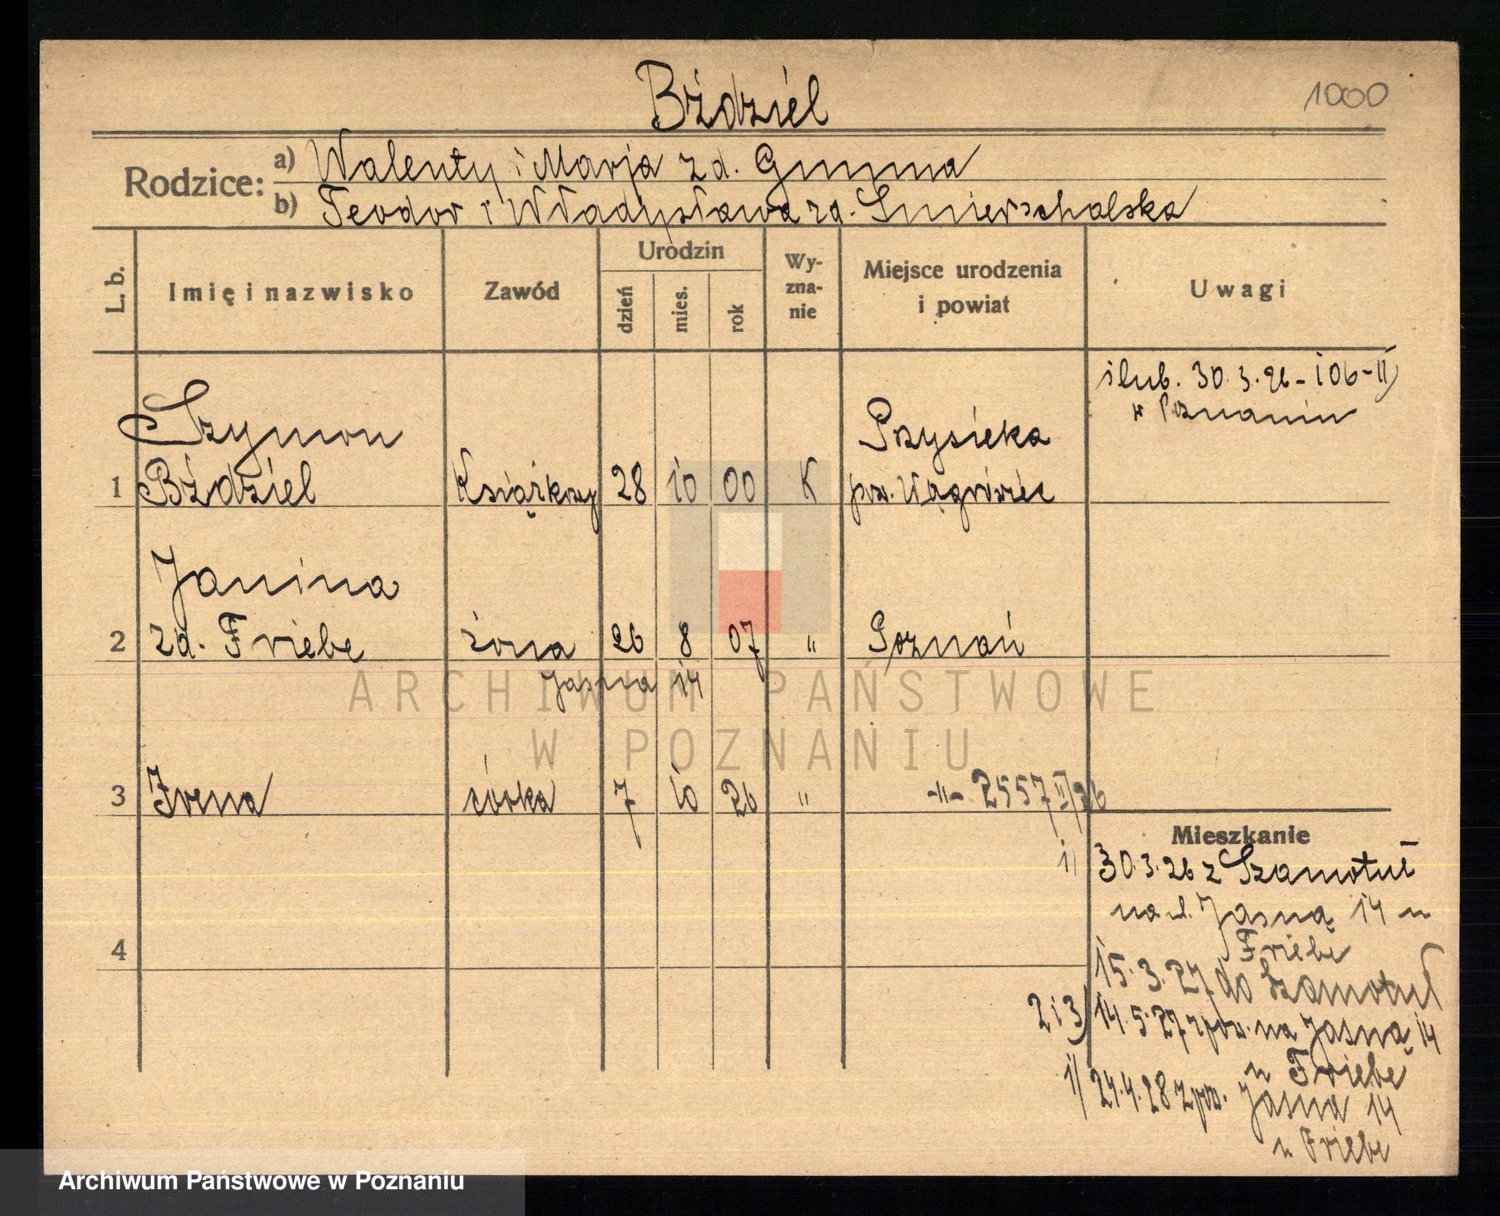 Bździel
1000
Rodzice: a) Walenty i Marja zd. Gmma
b) Teodor i Władysława zd. Smierzchalska
L. b. Imię i nazwisko Zawód Urodzin dzień mies. rok Wyznanie Miejsce urodzenia i powiat Uwagi
ślub. 30.3.26 - 106-II
w Poznaniu
Szymon Przysieka
1 Bździel Książkowy 28 10 00 K pow. Wągrówiec
Janina
2 zd. Friebe żona 26 8 07 " Poznań
Jasna 14
3 Irena córka 7 10 26 " -"- 2557 II/26
Mieszkanie
1) 30.3.26 z Szamotuł
na ul. Jasną 14 u
Friebe
4
15.3.27 do Szamotuł
2 i 3) 14.5.27 zpow. na Jasną 14
u Friebe
1) 24.4.28 zpow. Jasna 14
u Friebe
ARCHIWUM PAŃSTWOWE
W POZNANIU
Archiwum Państwowe w Poznaniu